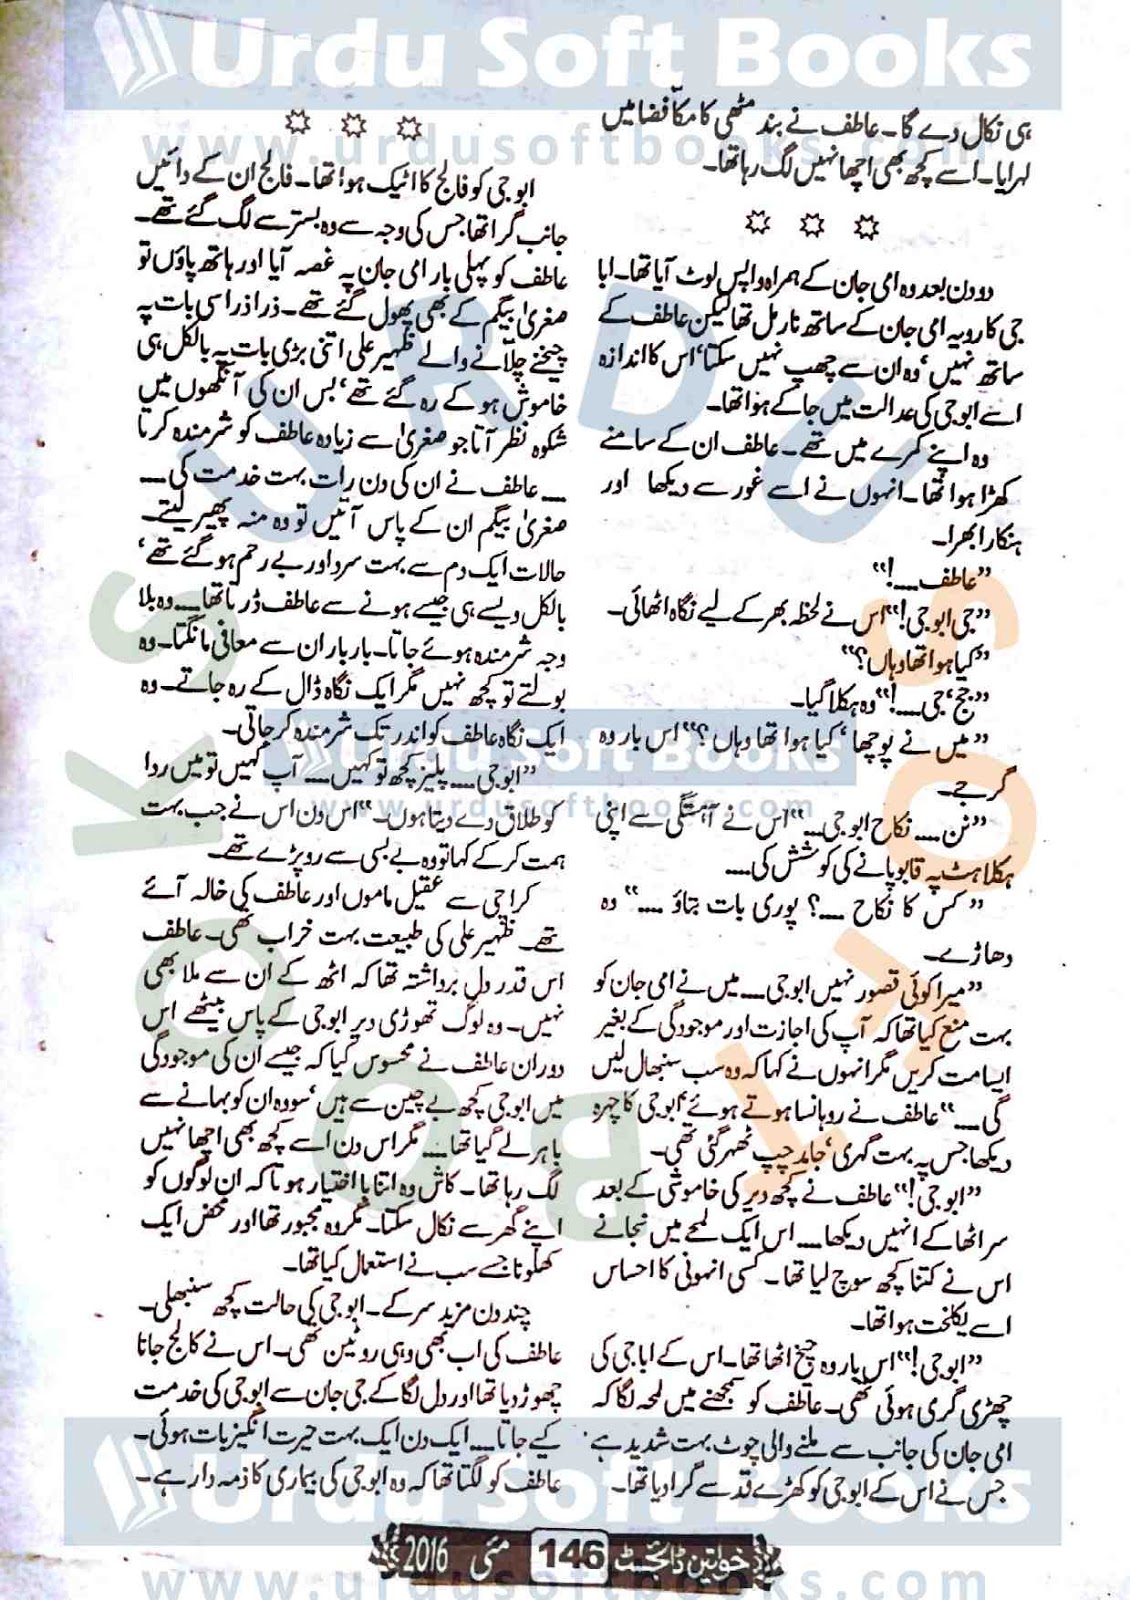 Urdu Soft Books
www.urdusoftbooks.com
ہی نکال دے گا۔ عاطف نے بند مٹھی کا مکا فضا میں
لہرایا۔ اسے کچھ بھی اچھا نہیں لگ رہا تھا۔
دو دن بعد وہ امی جان کے ہمراہ واپس لوٹ آیا تھا۔ ابا
جی کا رویہ امی جان کے ساتھ نارمل تھا لیکن عاطف کے
ساتھ نہیں، وہ ان سے چھپ نہیں سکتا، اس کا اندازہ
اسے ابو جی کی عدالت میں جا کے ہوا تھا۔
وہ اپنے کمرے میں تھے۔ عاطف ان کے سامنے
کھڑا ہوا تھا۔ انہوں نے اسے غور سے دیکھا اور
ہنکارا بھرا۔
”عاطف....!“
”جی ابو جی!“ اس نے لحظہ بھر کے لیے نگاہ اٹھائی۔
”کیا ہوا تھا وہاں؟“
”جج، جی....!“ وہ ہکلا گیا۔
”میں نے پوچھا، کیا ہوا تھا وہاں؟“ اس بار وہ
گرجے۔
”نن.... نکاح ابو جی....“ اس نے آہستگی سے اپنی
ہکلاہٹ پہ قابو پانے کی کوشش کی....
”کس کا نکاح ....؟ پوری بات بتاؤ ....“ وہ
دھاڑے۔
”میرا کوئی قصور نہیں ابو جی.... میں نے امی جان کو
بہت منع کیا تھا کہ آپ کی اجازت اور موجودگی کے بغیر
ایسا مت کریں مگر انہوں نے کہا کہ وہ سب سنبھال لیں
گی....“ عاطف نے روہانسا ہوتے ہوئے ابو جی کا چہرہ
دیکھا جس پہ بہت گہری، جامد چپ ٹھہر گئی تھی۔
”ابو جی!“ عاطف نے کچھ دیر کی خاموشی کے بعد
سر اٹھا کے انہیں دیکھا.... اس ایک لمحے میں نجانے
اس نے کتنا کچھ سوچ لیا تھا۔ کسی انہونی کا احساس
اسے یکلخت ہوا تھا۔
”ابو جی!“ اس بار وہ چیخ اٹھا تھا۔ اس کے ابا جی کی
چھڑی گری ہوئی تھی۔ عاطف کو سمجھنے میں لمحہ لگا کہ
امی جان کی جانب سے ملنے والی چوٹ بہت شدید ہے
جس نے اس کے ابو جی کو کھڑے قد سے گرا دیا تھا۔
ابو جی کو فالج کا اٹیک ہوا تھا۔ فالج ان کے دائیں
جانب گرا تھا جس کی وجہ سے وہ بستر سے لگ گئے تھے۔
عاطف کو پہلی بار امی جان پہ غصہ آیا اور ہاتھ پاؤں تو
صغریٰ بیگم کے بھی پھول گئے تھے۔ ذرا ذرا سی بات پہ
چیخنے چلانے والے ظہیر علی اتنی بڑی بات پہ بالکل ہی
خاموش ہو کے رہ گئے تھے، بس ان کی آنکھوں میں
شکوہ نظر آتا جو صغریٰ سے زیادہ عاطف کو شرمندہ کرتا
.... عاطف نے ان کی دن رات بہت خدمت کی ....
صغریٰ بیگم ان کے پاس آتیں تو وہ منہ پھیر لیتے۔
حالات ایک دم سے بہت سرد اور بے رحم ہو گئے تھے،
بالکل ویسے ہی جیسے ہونے سے عاطف ڈرتا تھا.... وہ بلا
وجہ شرمندہ ہوئے جاتا۔ بار بار ان سے معافی مانگتا۔ وہ
بولتے تو کچھ نہیں مگر ایک نگاہ ڈال کے رہ جاتے۔ وہ
ایک نگاہ عاطف کو اندر تک شرمندہ کر جاتی۔
”ابو جی.... پلیز کچھ تو کہیں.... آپ کہیں تو میں ردا
کو طلاق دے دیتا ہوں۔“ اس دن اس نے جب بہت
ہمت کر کے کہا تو وہ بے بسی سے رو پڑے تھے۔
کراچی سے عقیل ماموں اور عاطف کی خالہ آئے
تھے۔ ظہیر علی کی طبیعت بہت خراب تھی۔ عاطف
اس قدر دل برداشتہ تھا کہ اٹھ کے ان سے ملا بھی
نہیں۔ وہ لوگ تھوڑی دیر ابو جی کے پاس بیٹھے اس
دوران عاطف نے محسوس کیا کہ جیسے ان کی موجودگی
میں ابو جی کچھ بے چین سے ہیں، سو وہ ان کو بہانے سے
باہر لے گیا تھا.... مگر اس دن اسے کچھ بھی اچھا نہیں
لگ رہا تھا۔ کاش وہ اتنا با اختیار ہوتا کہ ان لوگوں کو
اپنے گھر سے نکال سکتا۔ مگر وہ مجبور تھا اور محض ایک
کھلونا جسے سب نے استعمال کیا تھا۔
چند دن مزید سرکے۔ ابو جی کی حالت کچھ سنبھلی۔
عاطف کی اب بھی وہی روٹین تھی۔ اس نے کالج جانا
چھوڑ دیا تھا اور دل لگا کے جی جان سے ابو جی کی خدمت
کیے جاتا.... ایک دن ایک بہت حیرت انگیز بات ہوئی۔
عاطف کو لگتا تھا کہ وہ ابو جی کی بیماری کا ذمہ دار ہے۔
Urdu Soft Books
www.urdusoftbooks.com
URDU SOFT BOOKS
Urdu Soft Books
خواتین ڈائجسٹ 146 مئی 2016
www.urdusoftbooks.com